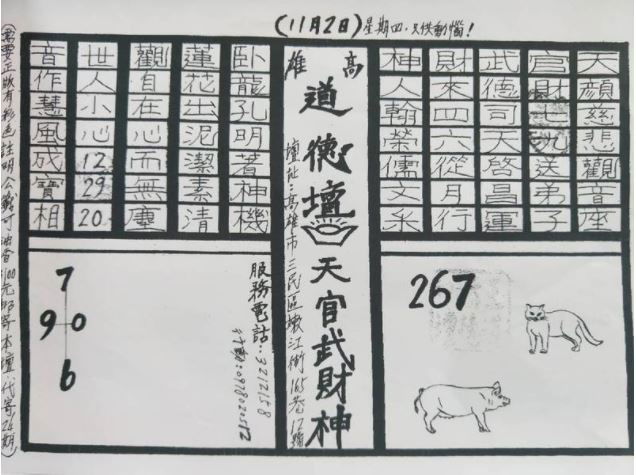 (11月2日)星期四.只供動惱!
天顏慈悲觀音座
官財七送弟子
武德司天啓昌運
財來四六從月行
神人翰榮儒文采
267
高雄
道德壇
天官武財神
壇址:高雄市三民區嫩江街165巷12號
卧龍孔明著神機
蓮花出泥潔素清
觀自在心而無塵
世人小心12 29 20
音作慧風成寶相
服務電話:3212158
行動:
7
9 0
6
(需要正版有彩色註明公戳可油香100元郵寄本壇代寄24期)